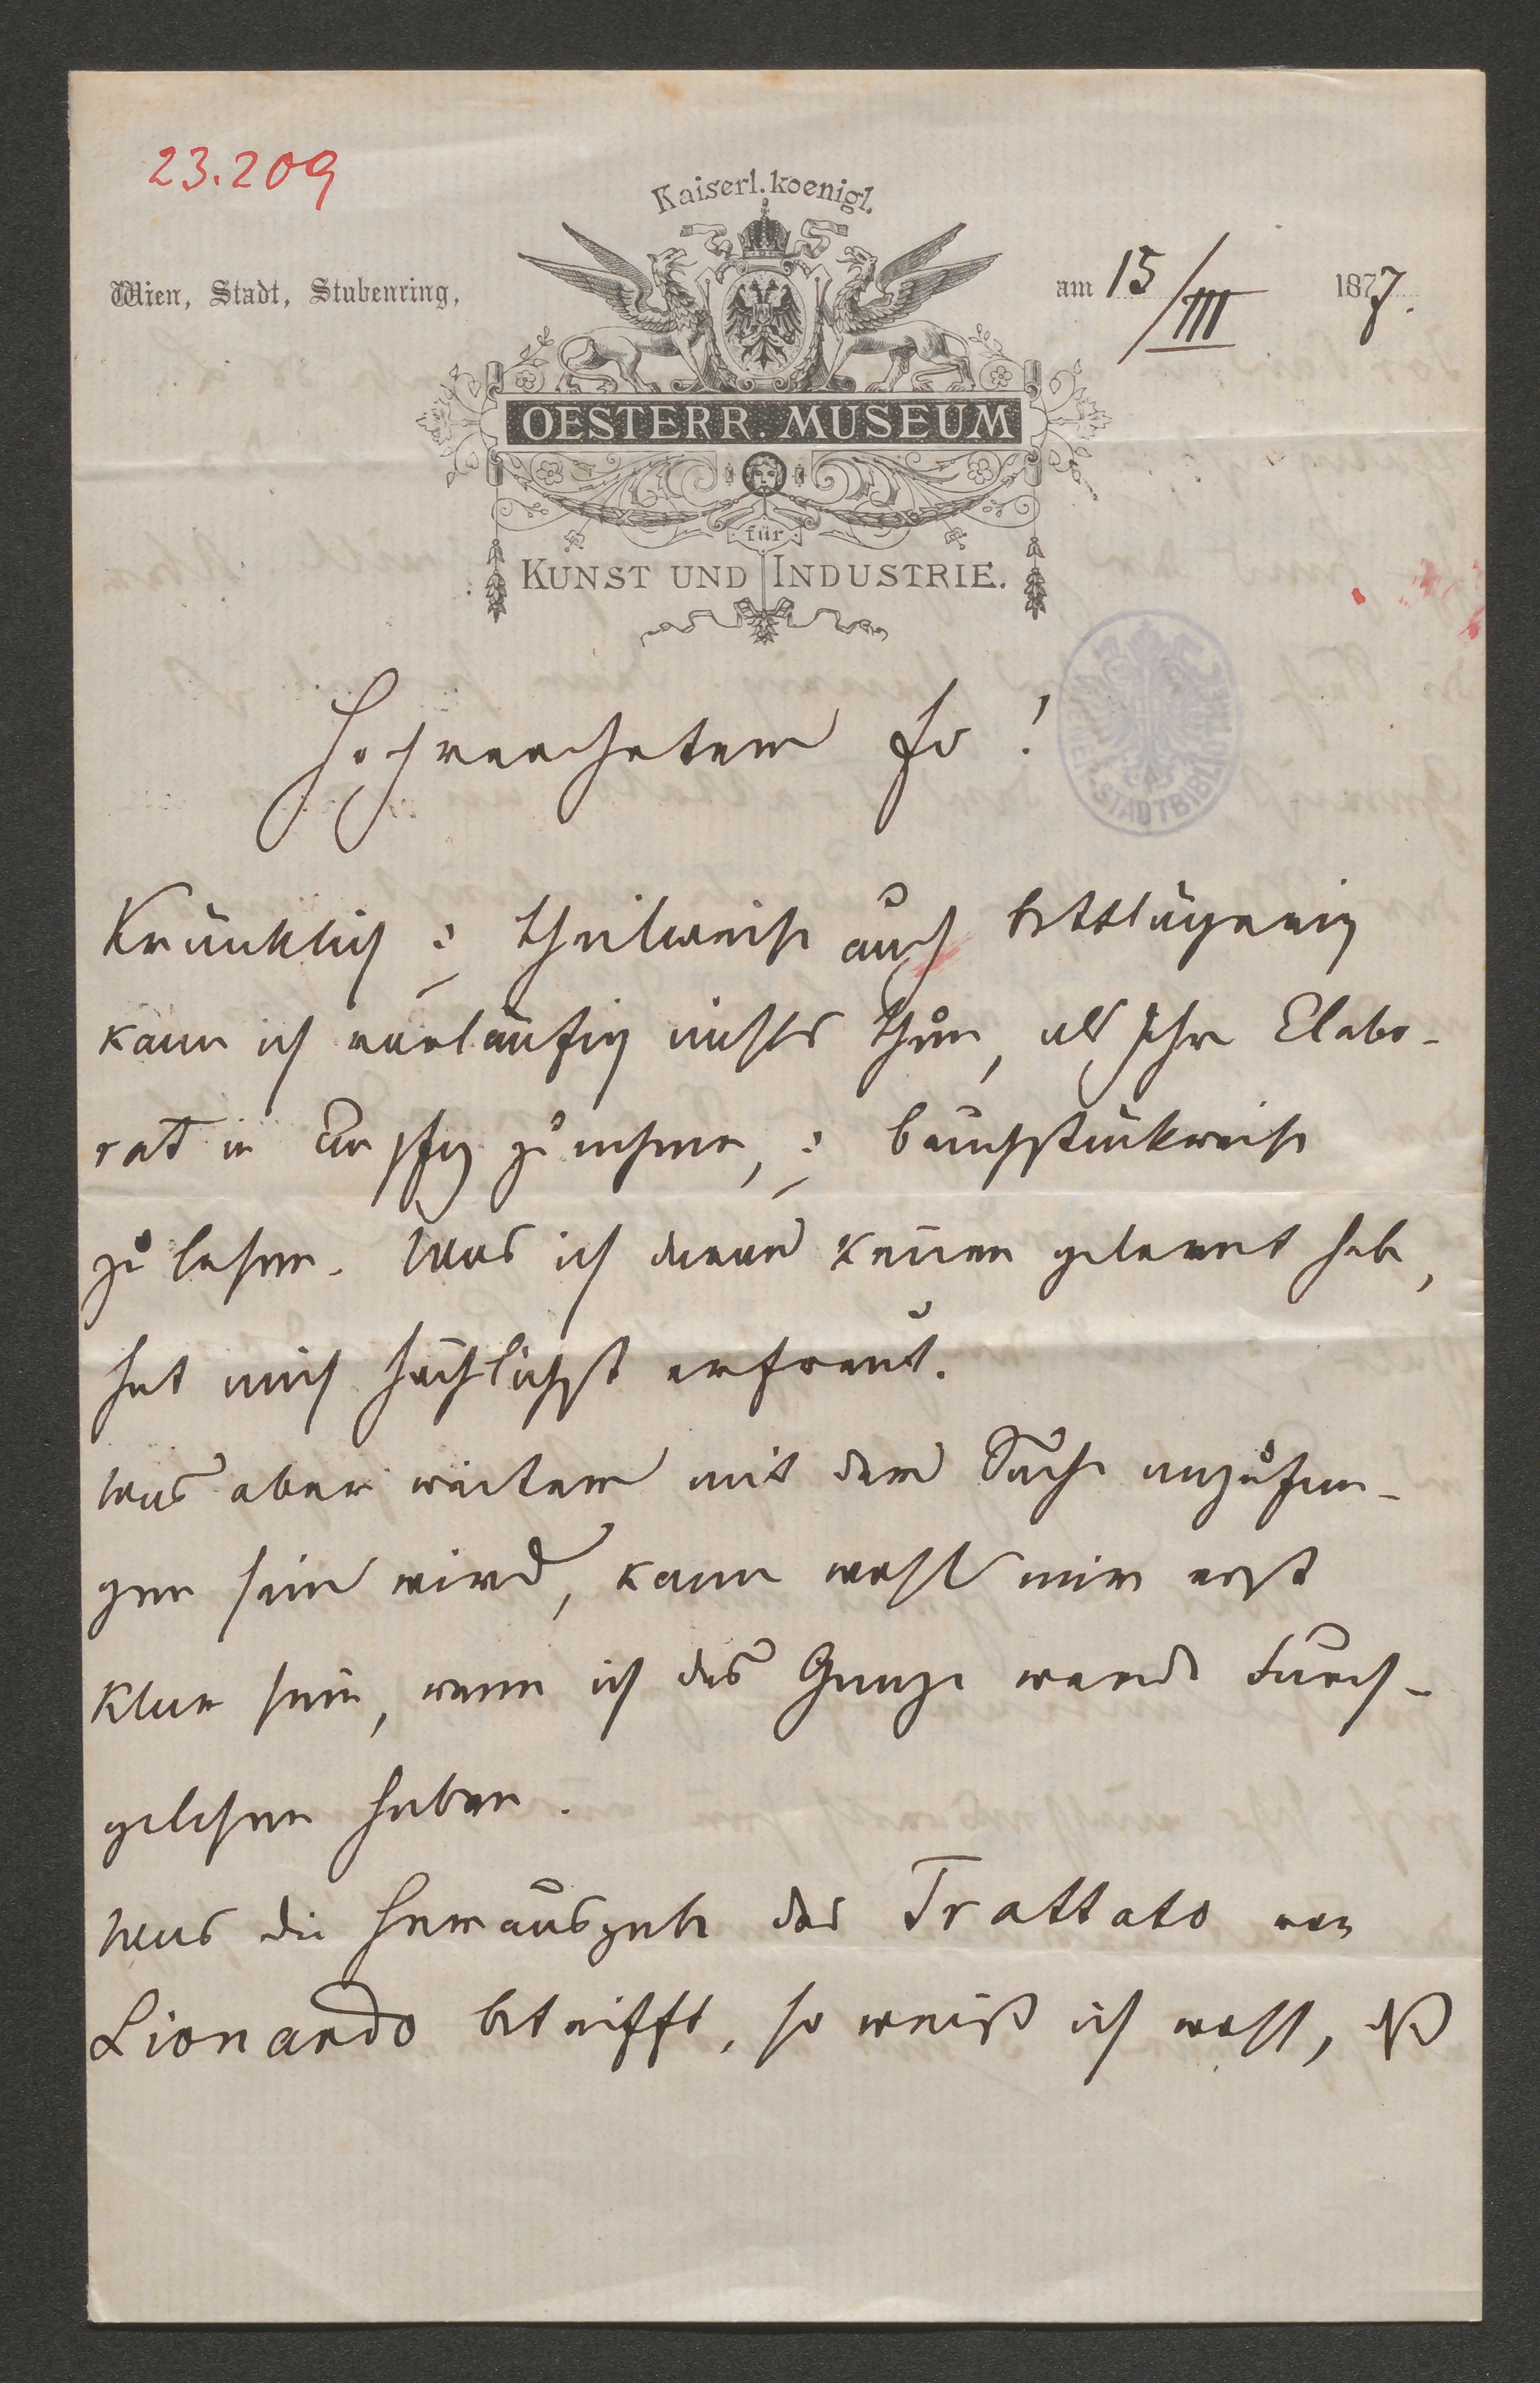 23.209
Kaiserl. koenigl.
Wien, Stadt, Stubenring,
am 15/III 1877.
OESTERR. MUSEUM
für
KUNST UND INDUSTRIE.
WIENER STADTBIBLIOTHEK
Hochverehrter Fr!
Kränklich & theilweise auch bettlägerig
kann ich vorläufig nichts thun, als Ihr Elabo-
rat in Empfg zu nehmen, & bruchstückweise
zu lesen. Was ich daraus kennen gelernt habe,
hat mich höchlichst erfreut.
Was aber weiter mit der Sache anzufan-
gen sein wird, kann wohl mir erst
klar sein, wenn ich das Ganze werde durch-
gelesen haben.
Was die Herausgabe des Trattato von
Lionardo betrifft, so weiß ich wohl, dß